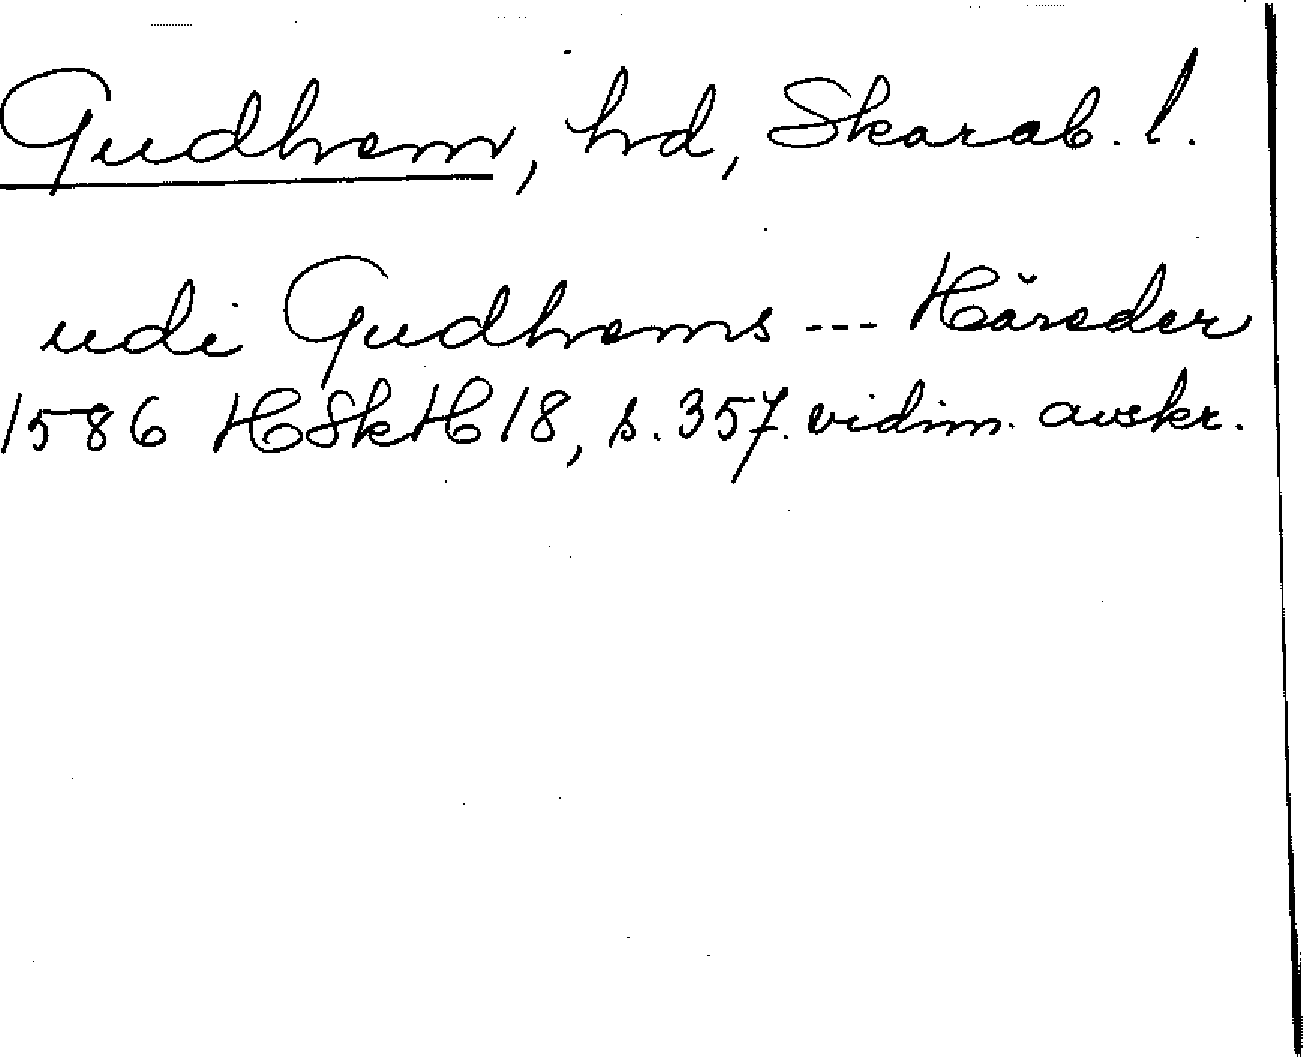 Gudhem, hd, Skarab. l.
udi Gudhems --- Häreder
1586 HSkH 18, s. 357. vidim. avskr.